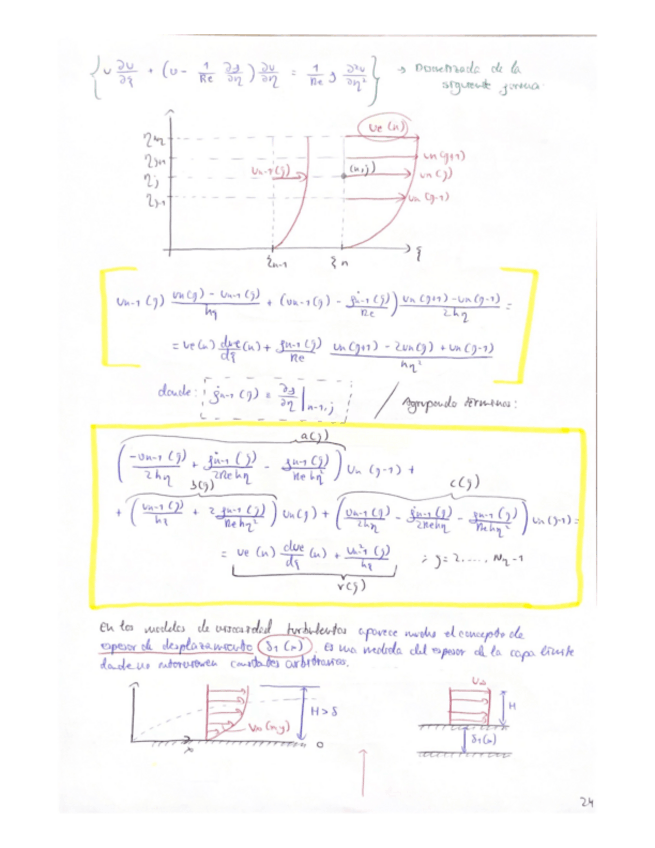 { u ∂u/∂ξ + (v - 1/Re ∂g/∂η) ∂u/∂η = 1/Re g ∂²u/∂η² } → Discretizada de la
siguiente forma:
ue(n)
ηNη
ηj+1
ηj
ηj-1
un-1(j)
(n,j)
un(j+1)
un(j)
un(j-1)
ξn-1
ξn
ξ
un-1(j) (un(j) - un-1(j))/hξ + (vn-1(j) - ġn-1(j)/Re) (un(j+1) - un(j-1))/2hη =
= ue(n) due/dξ(n) + gn-1(j)/Re (un(j+1) - 2un(j) + un(j-1))/hη²
donde: ġn-1(j) = ∂g/∂η |n-1,j
Agrupando términos:
a(j)
(-vn-1(j)/2hη + ġn-1(j)/2Re hη - gn-1(j)/Re hη²) un(j-1) +
b(j)
c(j)
+ (un-1(j)/hξ + 2 gn-1(j)/Re hη²) un(j) + (vn-1(j)/2hη - ġn-1(j)/2Re hη - gn-1(j)/Re hη²) un(j+1) =
= ue(n) due/dξ (n) + u²n-1(j)/hξ ; j = 2, ...., Nη-1
r(j)
En los modelos de viscosidad turbulentos aparece mucho el concepto de
espesor de desplazamiento δ1(x). Es una medida del espesor de la capa límite
donde no intervienen constantes arbitrarias.
H > δ
x
0
H
δ1(x)
24